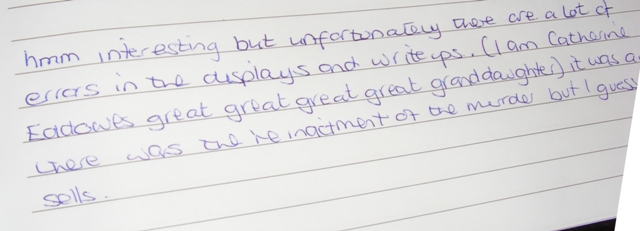 hmm interesting but unfortunately there are a lot of
errors in the displays and write ups. (I am Catherine
Eddowes great great great great granddaughter) it was a
there was the re inactment of the murder but I guess
sells.